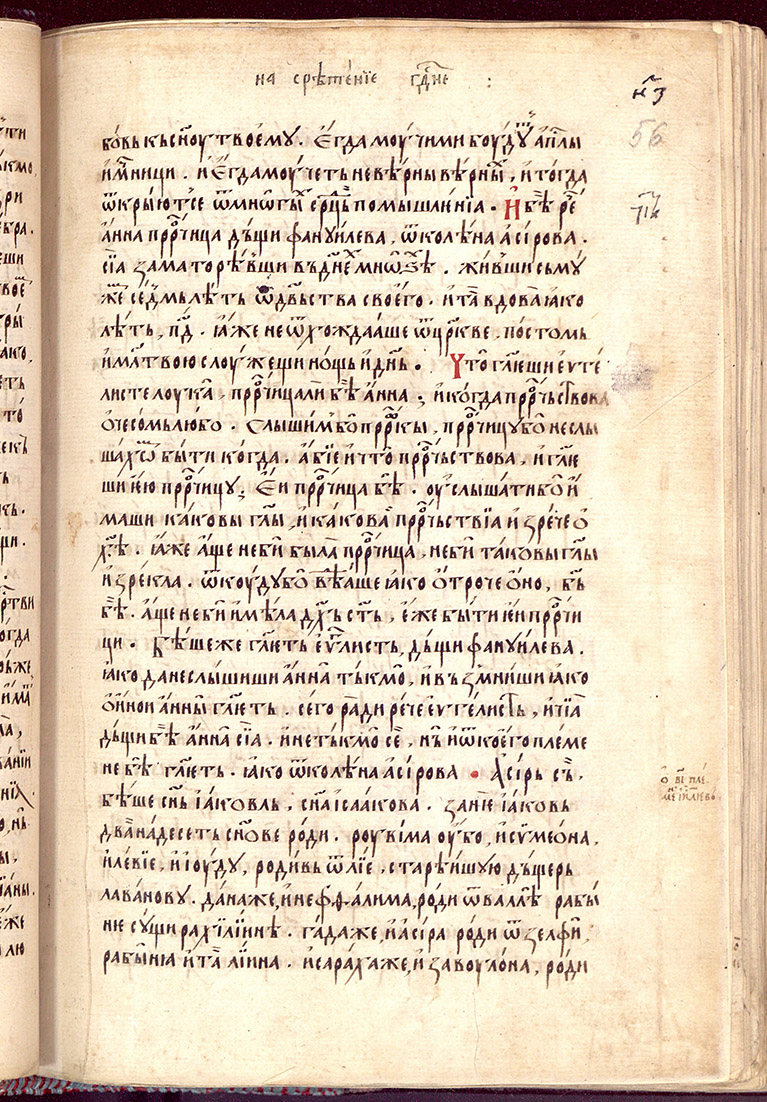 на срѣтенїе гдⷭ҇не :
н҃з
56
бо́вь къ сн҃оу твоѐму . Е҆гда моу́чими боу́дꙋⷮ а҆пⷭ҇лы
и҆ мⷱ҇ници . и҆ Е҆гда моу́четь невѣ́рны вѣ́рныⷯ , и҆ тогда
ѿкры́ютсе ѿ мно́гыⷯ срⷣць помышле́нїа . И҆ бѣ̀ реⷱ҇
а҆́нна прⷪ҇рчица дъ́щи фануи́лева , ѿ колѣ́на а҆си́рова .
сїа̀ заматорѣ́вши въ днеⷯ мнѡ́ꙃѣ . жи́вши съ му́
жеⷨ се́дмь лѣ́ть ѿ дв҃ьства своего̀ . и҆ та̀ вдова̀ ꙗ҆ко
лѣ́ть , п҃д . ꙗ҆́же не ѿхожда́аше ѿ цр҃кве . посто́мь
и҆ мл҃твою слоу́жещи но́щь и҆ дн҃ь . Что̀ гл҃еши еѵ҆ге́
листе лоука̀ , прⷪ҇рчица ли бѣ̀ а҆́нна ; и҆ когда̀ прⷪ҇рчьствова
о҆ чесо́мь любо . Слы́шим бо̀ прⷪ҇ркы , прⷪ҇рчицу бо̀ не слы
шахѡⷨ бы́ти когда . а҆́бїе и҆ что̀ прⷪ҇рчьствова , и҆ гл҃е
ши ю҆ прⷪ҇рчицу ; Е҆́и прⷪ҇рчица бѣ̀ . оу҆слы́шати бо̀ и҆
маши каковы гл҃ы , и҆ какова̀ прⷪ҇рчьствїа и҆зре́че о҆
х҃ѣ . ꙗ҆́же а҆́ще не бы̀ была̀ прⷪ҇рчица , не бы̀ таковы гл҃ы
и҆зрекла . ѿкоу́ду бо̀ вѣ́аше ꙗ҆ко ѻ҆́троче ѻ҆́но , бъ҃
бѣ̀ . а҆́ще не бы̀ и҆мѣ́ла дх҃ъ ст҃ъ , е҆́же бы́ти е҆и прⷪ҇рчи
ци . Бѣ́ше же гл҃еть еѵⷢ҇листь , дъ́щи фануи́лева .
ꙗ҆ко да не слы́шиши а҆́нна тъ́кмо , и҆ възмни́ши ꙗ҆ко
о҆ и҆но́и а҆́нны гл҃еть . сего̀ ра́ди ре́че еѵ҆гели́сть , и҆ чїа̀
дъ́щи бѣ̀ а҆́нна сїа̀ . и҆ не тъ́кмо сѐ , нъ̀ и҆ ѿ кое́го пле́ме
не бѣ̀ гл҃еть . ꙗ҆ко ѿ колѣ́на а҆си́рова . А҆си́рь съ̀ .
бѣ́ше сн҃ь ꙗ҆́ковль , сн҃а і҆саа́кова . зане́ і҆а́ковь
два̀ на́десеть сн҃ове ро́ди . роуви́ма оу҆́бо , и҆ сѵмео́на ,
и҆ леві́е , и҆ і҆оу́ду , ро́ди въ ѿ лі́е , старѣ́ишую дъ́щерь
лава́нову . да́на же , и҆ нефѳали́ма , ро́ди ѿ валлы̀ рабы́
ние су́щи рахи́лїинѣ . га́да же , и҆ а҆си́ра ро́ди ѿ зелфы̀ ,
рабы́нїа и҆ та̀ лі́ина . и҆ сара́ха же , и҆ завоуло́на , ро́ди